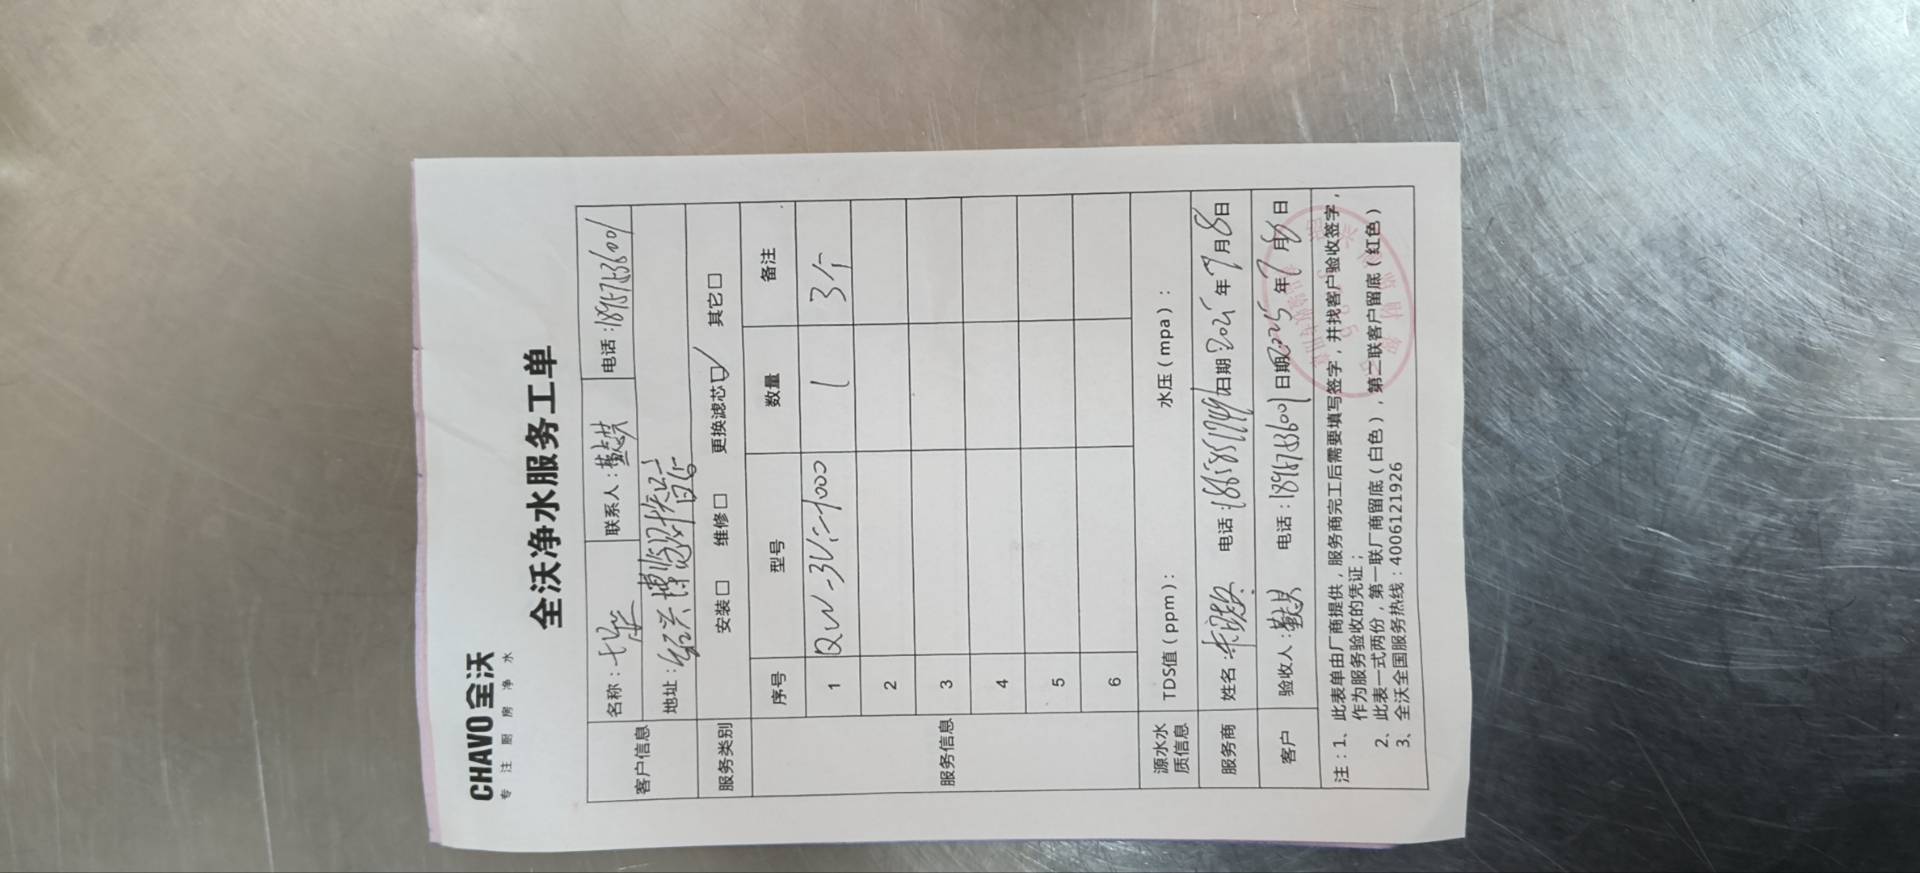 CHAVO全沃
专注厨房净水
全沃净水服务工单
客户信息 名称： 联系人： 电话：18957536001
地址：绍兴博
服务类别 安装□ 维修□ 更换滤芯☑ 其它□
服务信息 序号 型号 数量 备注
1 QW-3V 1000 1 3个
2
3
4
5
6
源水水质信息 TDS值（ppm）： 水压（mpa）：
服务商 姓名： 电话： 日期 2025年7月8日
客户 验收人： 电话：18957536001 日期 2025年7月8日
注：1、此表单由厂商提供，服务商完工后需要填写签字，并找客户验收签字，
作为服务验收的凭证；
2、此表一式两份，第一联厂商留底（白色），第二联客户留底（红色）
3、全沃全国服务热线：4006121926